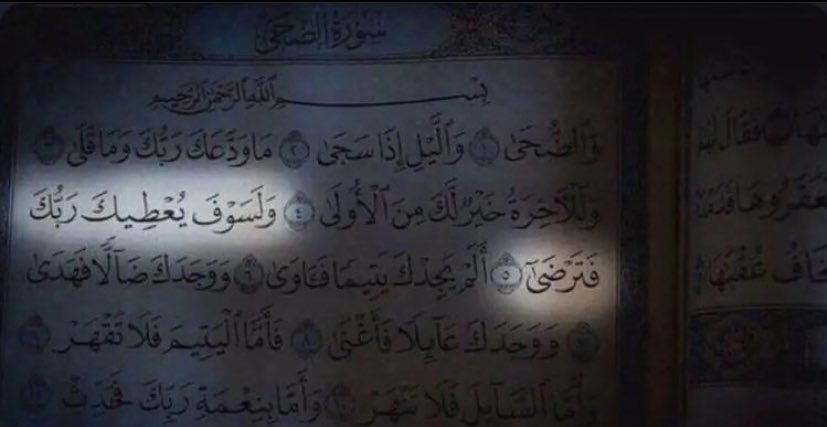 سُورَةُ الضُّحَىٰ
بِسْمِ ٱللَّهِ ٱلرَّحْمَٰنِ ٱلرَّحِيمِ
وَٱلضُّحَىٰ ١ وَٱلَّيْلِ إِذَا سَجَىٰ ٢ مَا وَدَّعَكَ رَبُّكَ وَمَا قَلَىٰ ٣
وَلَلْآخِرَةُ خَيْرٌ لَّكَ مِنَ ٱلْأُولَىٰ ٤ وَلَسَوْفَ يُعْطِيكَ رَبُّكَ
فَتَرْضَىٰٓ ٥ أَلَمْ يَجِدْكَ يَتِيمًا فَـَٔاوَىٰ ٦ وَوَجَدَكَ ضَآلًّا فَهَدَىٰ
٧ وَوَجَدَكَ عَآئِلًا فَأَغْنَىٰ ٨ فَأَمَّا ٱلْيَتِيمَ فَلَا تَقْهَرْ ٩
وَأَمَّا ٱلسَّآئِلَ فَلَا تَنْهَرْ ١٠ وَأَمَّا بِنِعْمَةِ رَبِّكَ فَحَدِّثْ ١١
فَقَالَ لَهُمْ
فَعَقَرُوهَا
يَخَافُ عُقْبَٰهَا